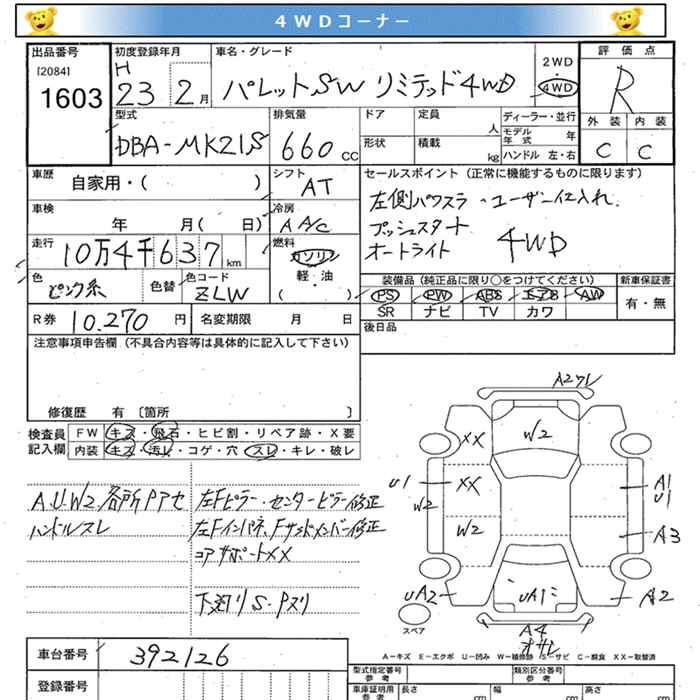 4WDコーナー
出品番号
[2084]
1603
初度登録年月
H
23 2月
車名・グレード
パレットSW リミテッド4WD
2WD
・
4WD
評価点
R
外装 内装
C C
型式
DBA-MK21S
排気量
660 cc
ドア
定員
人
形状
積載
kg
ディーラー・並行
モデル年式 年
ハンドル 左・右
車歴
自家用・( )
シフト
AT
車検
年 月( 日)
冷房
AAC
走行
10万4千637 km
燃料
ガソリン
軽・油
( )
セールスポイント(正常に機能するものに限ります)
左側パワスラ・ユーザー仕入れ.
プッシュスタート
オートライト 4WD
色
ピンク系
色替
色コード
ZLW
装備品(純正品に限り○をつけてください)
新車保証書
PS PW ABS エアB AW
SR ナビ TV カワ
有・無
R券
10.270 円
名変期限 月 日
後日品
注意事項申告欄(不具合内容等は具体的に記入して下さい)
修復歴 有 〔箇所 〕
検査員
記入欄
FW キズ・飛石・ヒビ割・リペア跡・X要
内装 キズ・汚レ・コゲ・穴 スレ・キレ・破レ
A.U.W2.各所Pアセ
ハンドルスレ
左Fピラー・センターピラー修正
左Fインパネ、Fサイドメンバー修正
コアサポートXX
下廻りS・Pヌリ
A2ワレ
XX
W2
U1
W2
XX
W2
A1
U1
A3
UA2
UA1
A2
A4
スペア
A-キズ E-エクボ U-凹み W-補修跡 S-サビ C-腐食 XX-取替済
車台番号
392126
登録番号
型式指定番号
参考
類別区分番号
参考
車庫証明用
参考
長さ
cm
幅
cm
高さ
cm